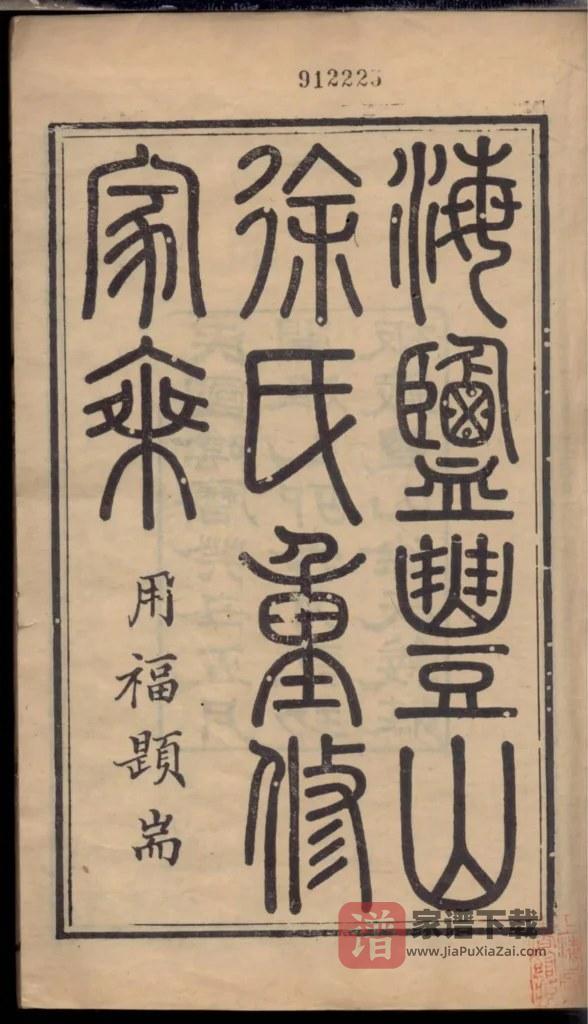 912223
海鹽豐山
徐氏重修
家乘
用福題耑
谱
家谱下载
www.JiaPuXiaZai.com